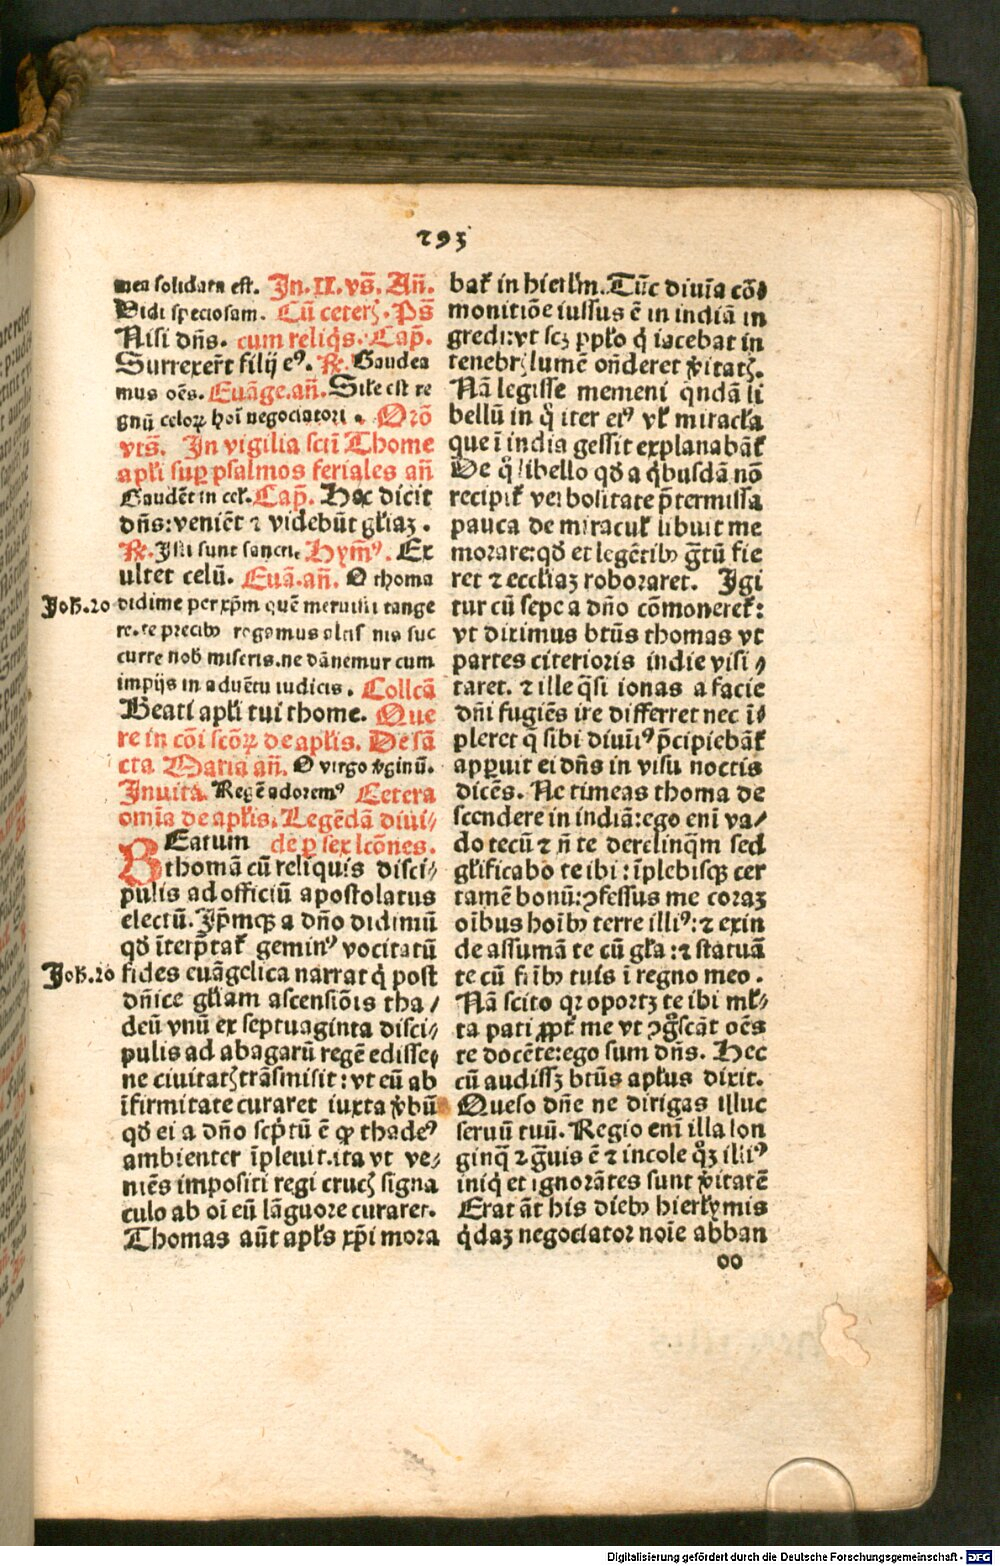 293
mea solidata est. In.II.vs̄. Añ.
Vidi speciosam. Cū ceterꝭ. Ps̄
Nisi dn̄s. cum reliq̄s. Cap̄.
Surrexer̄t filij eꝰ. ℞. Gaudea
mus oēs. Euāge.an̄. Sile est re
gnū celoꝝ hoī negociatori. Orō
vts̄. In vigilia scti Thome
apl̄i suꝑ psalmos feriales an̄
Gaudēt in cel̄. Cap̄. Hec dicit
dn̄s: veniēt ⁊ videbūt gl̄iaꝫ.
℞. Isti sunt sancti. Hym̄ꝰ. Ex
ultet celū. Euā.an̄. O thoma
Joh̄.20 didime per xp̄m quē meruisti tange
re.te precibꝰ rogamus altis nis suc
curre nob̄ miseris.ne dānemur cum
impijs in aduētu iudicis. Collcā
Beati apl̄i tui thome. Que
re in cōi scōꝝ de apl̄is. De sā
cta Maria an̄. O virgo v̄ginū.
Inuita. Regē adoremꝰ Cetera
omīa de apl̄is. Legēda diui⸗
BEatum de ꝑ sex lcōnes.
thomā cū reliquis disci⸗
pulis ad officiū apostolatus
electū. Ip̄mqꝫ a dn̄o didimū
qd̄ īterp̄tat̄ geminꝰ vocitatū
Joh̄.20 fides euāgelica narrat q̄ post
dn̄ice gl̄iam ascensiōis tha⸗
deū vnū ex septuaginta disci⸗
pulis ad abagarū regē edisse⸗
ne ciuitatꝭ trāsmisit: vt eū ab
īfirmitate curaret iuxta v̄bū
qd̄ ei a dn̄o scp̄tū ē qꝫ thadeꝰ
ambienter īpleuit.ita vt ve⸗
niēs impositi regi crucꝭ signa
culo ab oī eū lāguore curaret.
Thomas aūt apl̄s xp̄i mora
bat̄ in hierl̄m. Tūc diuīa cō⸗
monitiōe iussus ē in indiā in
gredi: vt scꝫ ppl̄o q̄ iacebat in
tenebrꝭ lumē on̄deret v̄itatꝭ.
Nā legisse memeni qndā li
bellū in q̄ iter eiꝰ vl̄ miracl̄a
que ī india gessit explanabāt̄
De q̄ libello qd̄ a q̄busdā nō
recipit̄ verbositate p̄termissa
pauca de miracul̄ libuit me
morare: qd̄ et legētibꝰ gr̄tū fie
ret ⁊ eccl̄iaꝫ roboraret. Igi
tur cū sepe a dn̄o cōmoneret̄:
vt diximus btūs thomas vt
partes citerioris indie visi⸗
taret. ⁊ ille q̄si ionas a facie
dn̄i fugiēs ire differret nec ī⸗
pleret q̄ sibi diuīꝰ p̄cipiebāt̄
apparuit ei dn̄s in visu noctis
dicēs. Ne timeas thoma de
scendere in indiā: ego enī va⸗
do tecū ⁊ n̄ te derelinqm̄ sed
gl̄ificabo te ibi: īplebisqꝫ cer
tamē bonū: ꝯfessus me coraꝫ
oībus hoībꝰ terre illiꝰ: ⁊ exin
de assumā te cū gl̄a: ⁊ statuā
te cū fr̄ibꝰ tuis ī regno meo.
Nā scito qꝛ oportꝫ te ibi ml̄⸗
ta pati ꝓpt̄ me vt ꝯgscāt oēs
te docēte: ego sum dn̄s. Hec
cū audissꝫ btūs apl̄us dixit.
Queso dn̄e ne dirigas illuc
seruū tuū. Regio enī illa lon
ginq̄ ⁊ gūis ē ⁊ incole qꝫ illiꝰ
iniq̄ et ignorātes sunt v̄itatē
Erat āt his diebꝰ hierl̄ymis
q̄daꝫ negociator noīe abban
oo
Digitalisierung gefördert durch die Deutsche Forschungsgemeinschaft - DFG